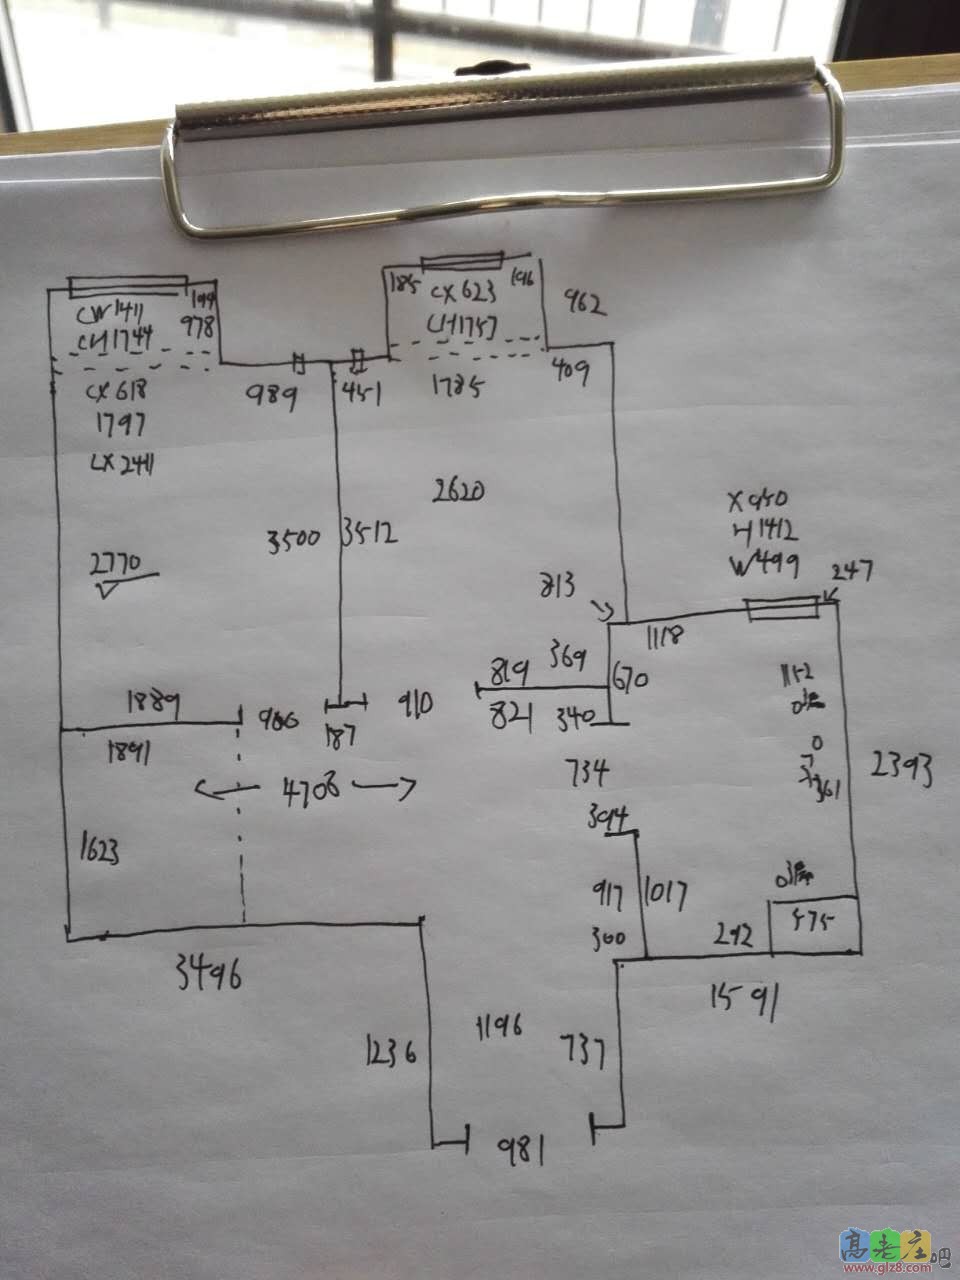 185
196
CX623
CH1757
962
194
CW1411
978
CH1744
989
451
1785
409
CX618
1797
LX2411
2620
3500
3512
X950
H1412
W499
247
2770
813
1118
369
819
670
1152
1889
910
821
340
187
1891
734
0
2393
4708
361
394
1623
917
1017
575
300
292
3496
1591
1196
1236
737
981
高老庄吧
www.glz8.com